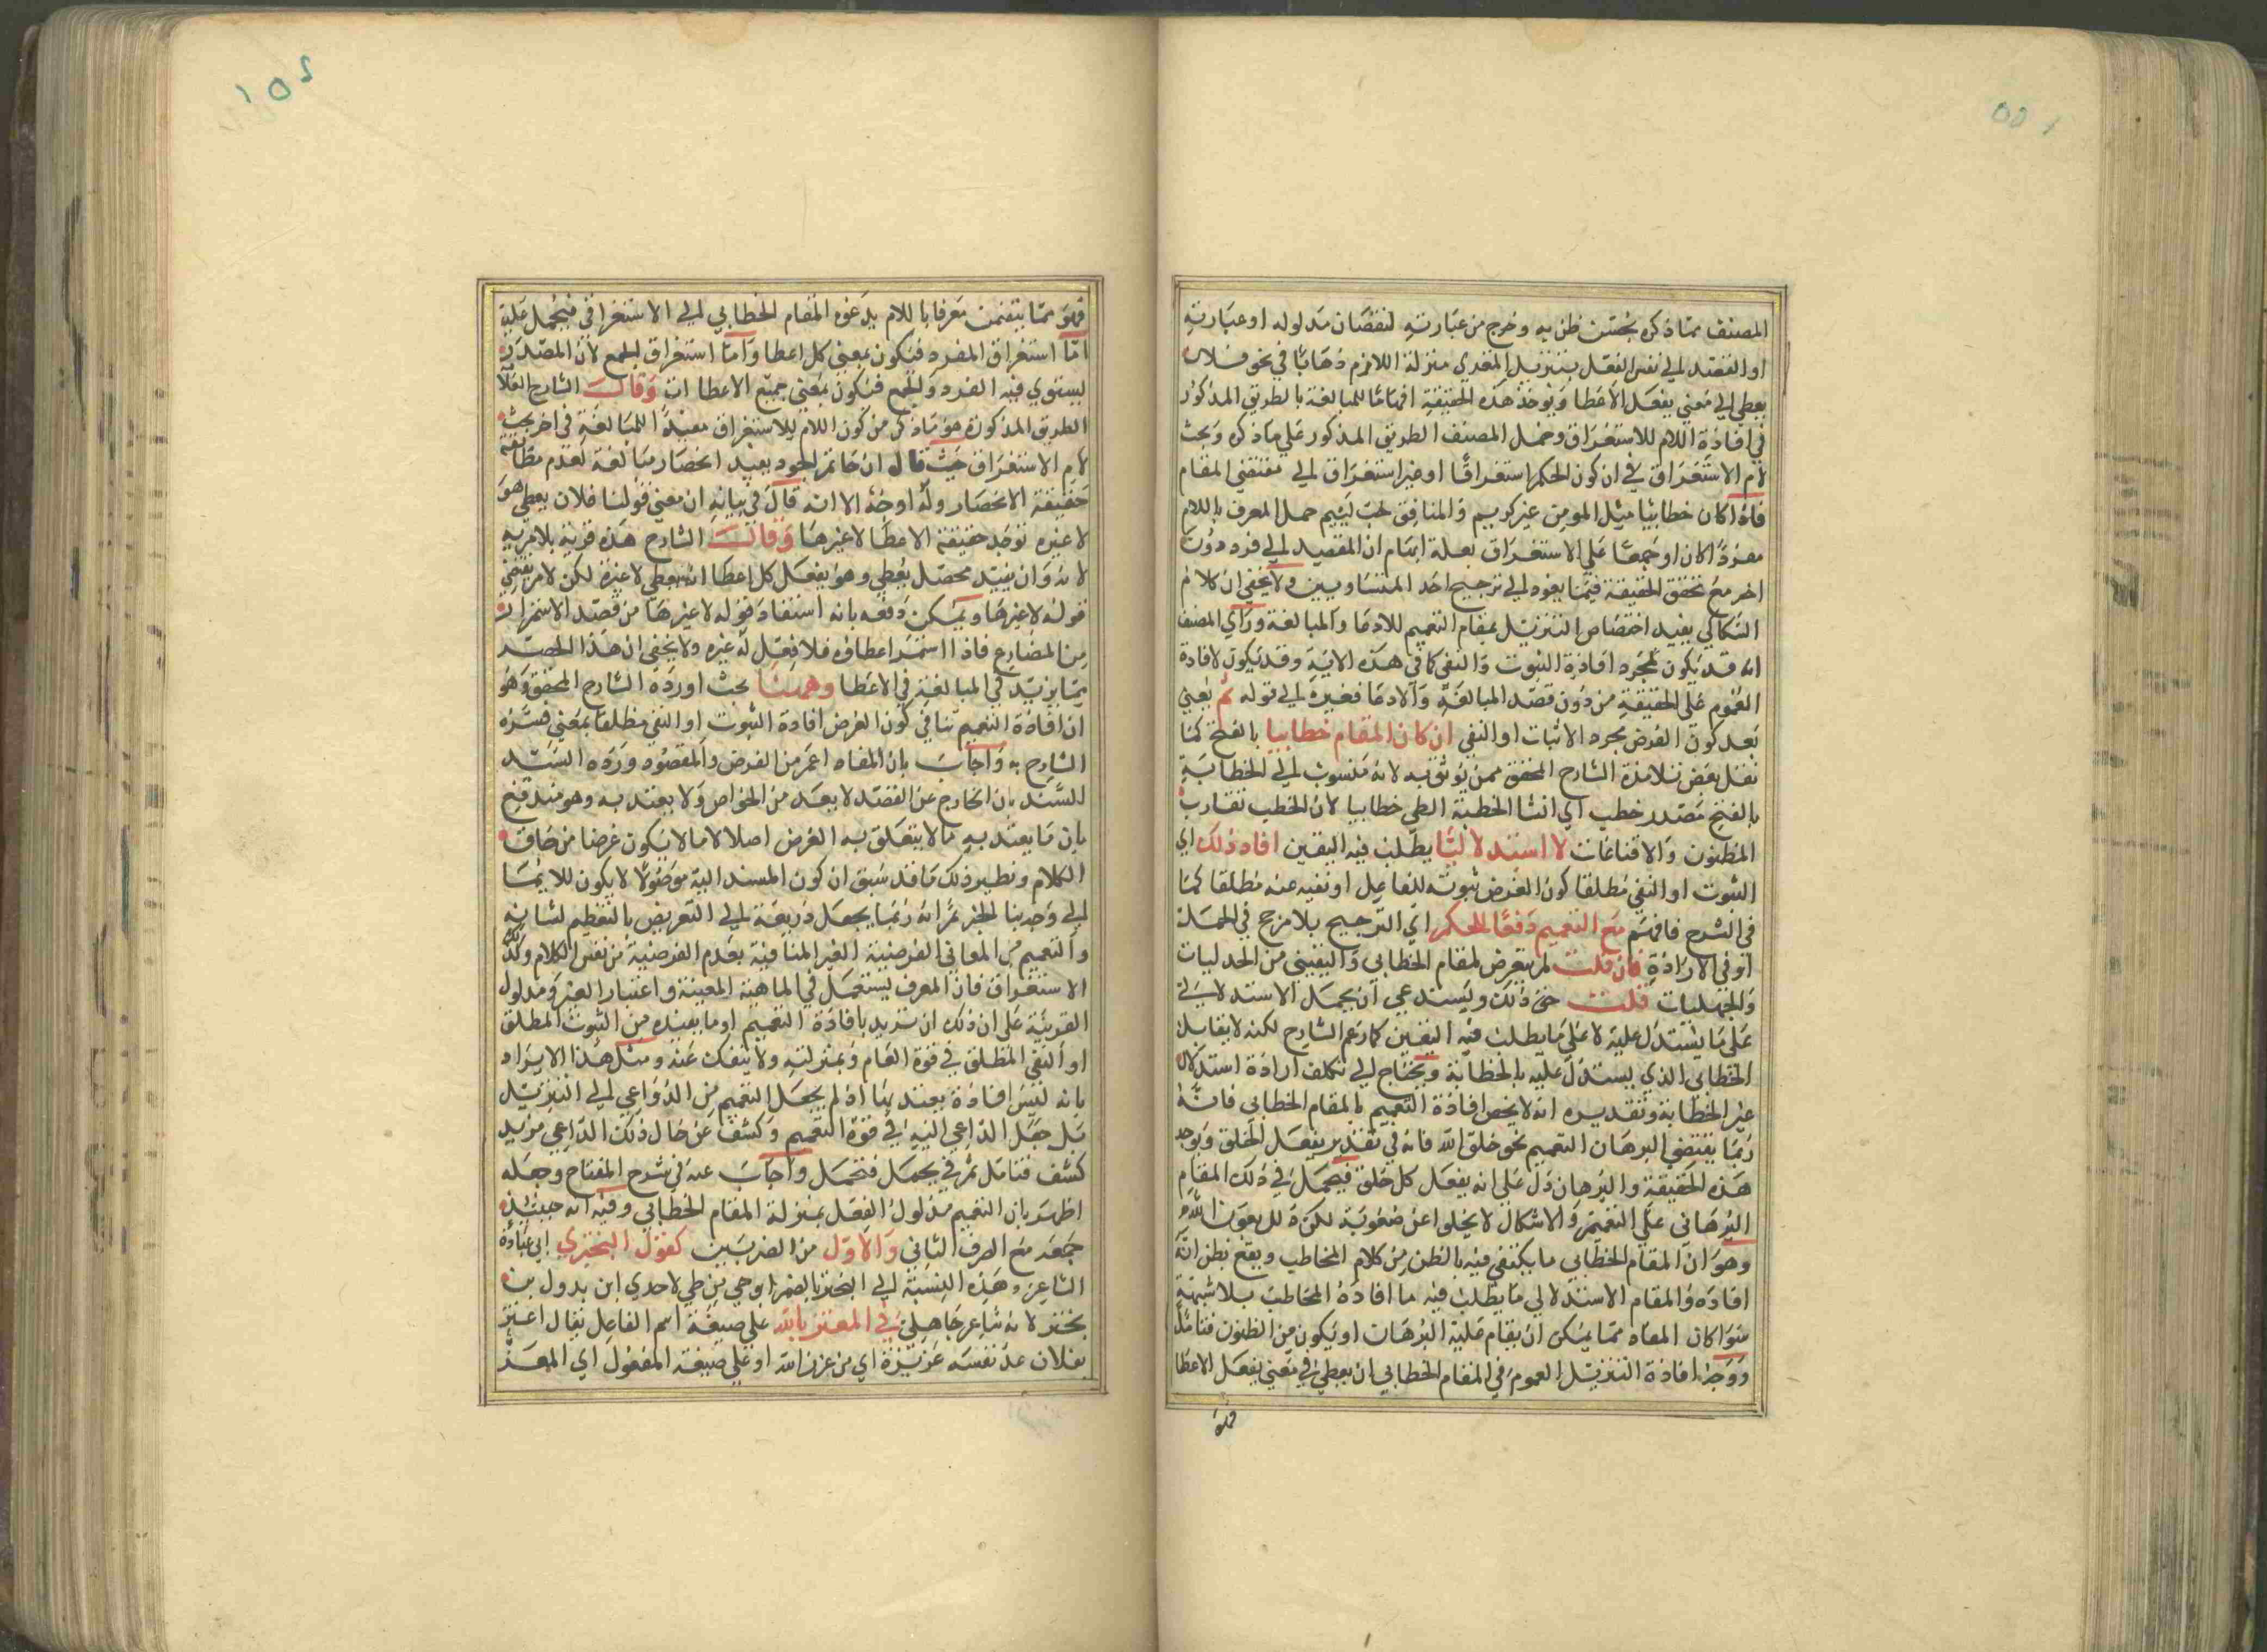 المصنف مما ذكره بحسن ظن به وخرج من عبارته لنقصان مدلوله او عبارته
او القصد الى نفس الفعل بتنزيل المتعدي منزلة اللازم ذهابا في نحو فلان
يعطي الى معنى يفعل الاعطا ويوجد هذه الحقيقة ايهاما للمبالغة بالطريق المذكور
في افادة اللام للاستغراق وحمل المصنف الطريق المذكور على ما ذكره وبحث
لام الاستغراق في ان كون الحكم استغراقا او غير استغراق الى مقتضى المقام
فاذا كان خطابيا مثل المومن غر كريم والمنافق خب لئيم حمل المعرف باللام
مفردا كان او جمعا على الاستغراق بعلة ايهام ان القصد الى فرد دون
اخر مع تحقق الحقيقة فيهما يعود الى ترجيح احد المتساويين ولا يخفى ان كلام
السكاكي يفيد اختصاص التنزيل بمقام التعميم للادعا والمبالغة وراى المصنف
انه قد يكون لمجرد افادة الثبوت والنفي كما في هذه الاية وقد يكون لافادة
العموم على الحقيقة من دون قصد المبالغة والادعا فغيره الى قوله ثم يعني
بعد كون الغرض مجرد الاثبات او النفي ان كان المقام خطابيا بالفتح كما
نقل بعض تلامذة الشارح المحقق ممن يوثق به لانه منسوب الى الخطابة
بالفتح مصدر خطب اي انشا الخطبة الطي خطابيا لان الخطيب تقارب
المظنون والاقناعات لا استدلاليا يطلب فيه اليقين افاد ذلك اي
الثبوت او النفي مطلقا كون الغرض ثبوته للفاعل او نفيه عنه مطلقا كما
في الشرح فافهم مع التعميم دفعا للتحكم اي الترجيح بلا مرجح في الحملة
او في الارادة فان قلت لم يتعرض لمقام الخطابي واليقيني من الجدليات
والجهليات قلت حق ذلك ويستدعي ان يحمل الاستدلالي
على ما يستدل عليه لا على ما يطلب فيه اليقين كما زعم الشارح لكنه لا يقابل
الخطابي الذي يستدل عليه بالخطابة ويحتاج الى تكلف ارادة استدلال
غير الخطابة وتقديره انه لا يخص افادة التعميم بالمقام الخطابي فانه
ربما يقتضي البرهان التعميم نحو خلق الله فانه في تقدير يفعل الخلق ويوجد
هذه الحقيقة والبرهان دل على انه يفعل كل خلق فيحمل في ذلك المقام
البرهاني على التعميم والاشكال لا يخلوا عن صعوبة لكن ذلل بعون الله
وهو ان المقام الخطابي ما يكتفى فيه بالظن من كلام المخاطب ويقع بظن انه
افاده والمقام الاستدلالي ما يطلب فيه ما افاده المخاطب بلا شبهة
سوا كان المفاد مما يمكن ان يقام عليه البرهان او يكون من الظنون فتامل
ووجه افادة التنزيل العموم في المقام الخطابي ان يعطي في معنى يفعل الاعطا
فهو
فهو مما يتضمن معرفا باللام يدعوه المقام الخطابي الى الاستغراق فيحمل عليه
اما استغراق المفرد فيكون بمعنى كل اعطا واما استغراق الجمع لان المصدر
يستوي فيه الفرد والجمع فيكون بمعنى جميع الاعطاات وقال الشارح العلا
الطريق المذكورة هو ما ذكر من كون اللام للاستغراق مفيدا للمبالغة في اخر بحث
لام الاستغراق حيث قال ان حاتم الجود يفيد انحصار مبالغة لعدم مطابقته
حقيقة الانحصار وله اوجه الا انه قال في بيانه ان معنى قولنا فلان يعطي هو
لا غيره توجد حقيقة الاعطا لا غيرها وقال الشارح هذه فرية بلا مرية
لانه وان يفيد محصل يعطي وهو يفعل كل اعطا انه يعطي لا غيره لكن لا يقتضي
قوله لا غيرها ويمكن دفعه بانه استفاد قوله لا غيرها من قصد الاستمرار
من المضارع فاذا استمر اعطاؤه فلا فعل له غيره ولا يخفى ان هذا الحصر
مما يزيد في المبالغة في الاعطا وههنا بحث اورده الشارح المحقق وهو
ان افادة التعميم تنافي كون الغرض افادة الثبوت او النفي مطلقا بمعنى فسره
الشارح به واجاب بان المفاد اعم من الغرض والمقصود ورده السيد
السند بان الخارج عن القصد لا يعد من الخواص ولا يعتد به وهو مندفع
بان ما يعتد به ما لا يتعلق به الغرض اصلا لا ما لا يكون غرضا من حاق
الكلام ونظير ذلك ما قد سبق ان كون المسند اليه موصولا لا يكون للايما
الى وجه بنا الخبر ثم انه ربما يجعل ذريعة الى التعريض بالتعظيم لشانه
والتعميم من المعاني الغرضية الغير المنافية بعدم الغرضية من نفس الكلام وكذلك
الاستغراق فان المعرف يستعمل في الماهية المعينة واعتبار الغير ومدلول
القرينة على ان ذلك ان تريد بافادة التعميم او ما يفيده من الثبوت المطلق
او النفي المطلق في قوة العام وبمنزلته ولا ينفك عنه ومثل هذا الايراد
بانه ليس افادة يعتد بها اذ لم يجعل التعميم من الدواعي الى التنزيل
بل جعل الداعي اليه في قوة التعميم وكشف عن حال ذلك الداعي مزيد
كشف فتامل ثم في يحمل فتحمل واجاب عنه في شرح المفتاح وجعله
اظهر بان التعميم مدلول الفعل بمنزلة المقام الخطابي وفيه انه حينئذ
جمعه مع الصرف الثاني والاول من الضربين كقول البحتري ابي عبادة
الشاعر وهذه النسبة الى البحتر بالضم ابو حي من طي لا حدي ابن بدول بن
بحتر لانه شاعر جاهلي في المعتز بالله على صيغة اسم الفاعل يقال اعتز
بفلان عد نفسه عزيزة اي من عزز الله او على صيغة المفعول اي المعد